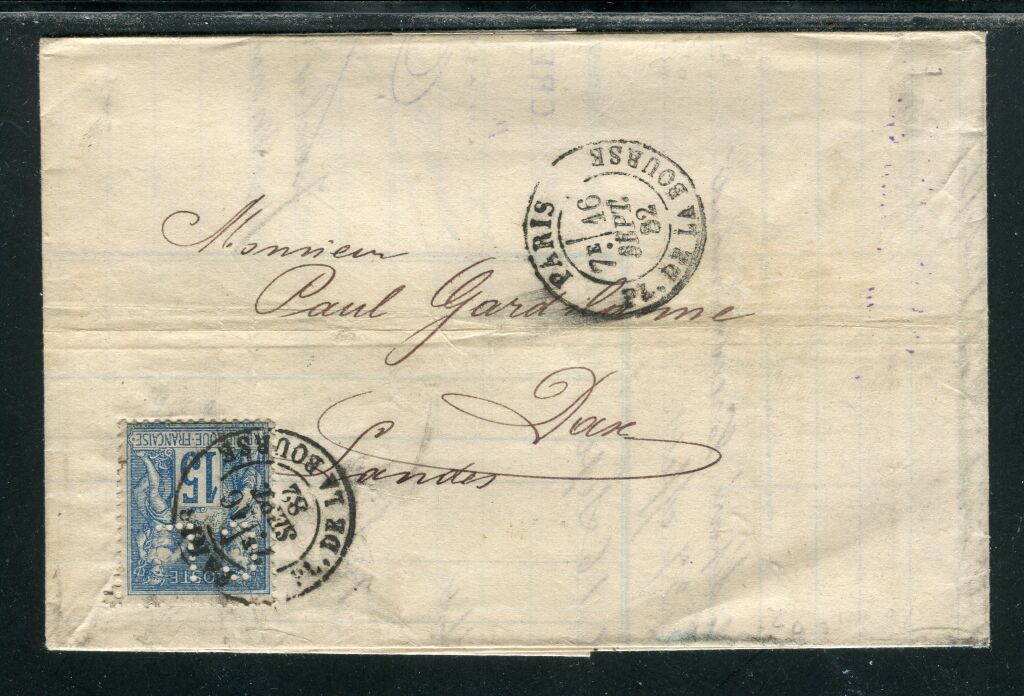 PARIS
PL. DE LA BOURSE
7E 16
SEPT.
82
Monsieur
Paul Gardilanne
Dax
Landes
15
POSTE
PL. DE LA BOURSE
SEPT
82